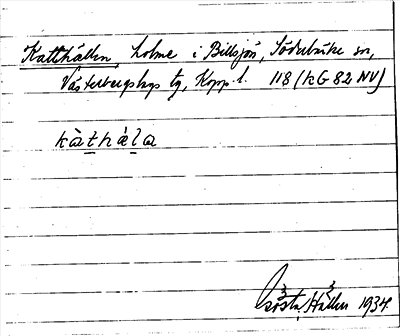 Katthällen, holme i Billsjön, Söderbärke sn,
Västerbergslags tg, Kopp. l. 118 (kG 82 NV)
kàthǽla
Gösta Hallén 1934.